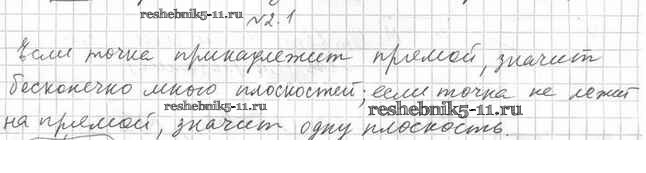 reshebnik5-11.ru
№2.1
Если точка принадлежит прямой, значит
бесконечно много плоскостей; если точка не лежит
reshebnik5-11.ru
reshebnik5-11.ru
на прямой, значит одну плоскость.